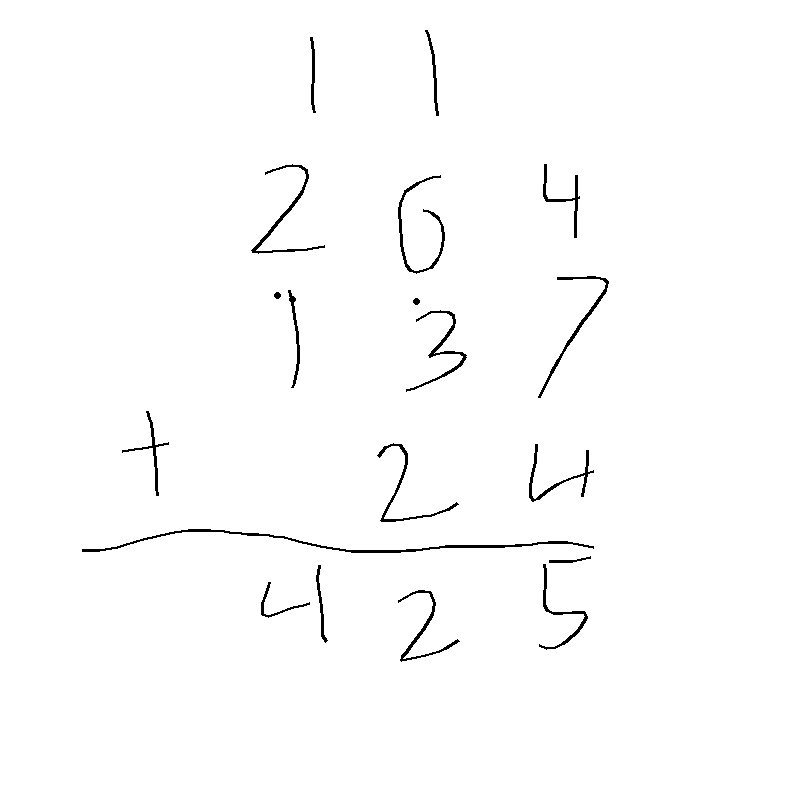 1 1
2 6 4
1 3 7
+ 2 4
4 2 5